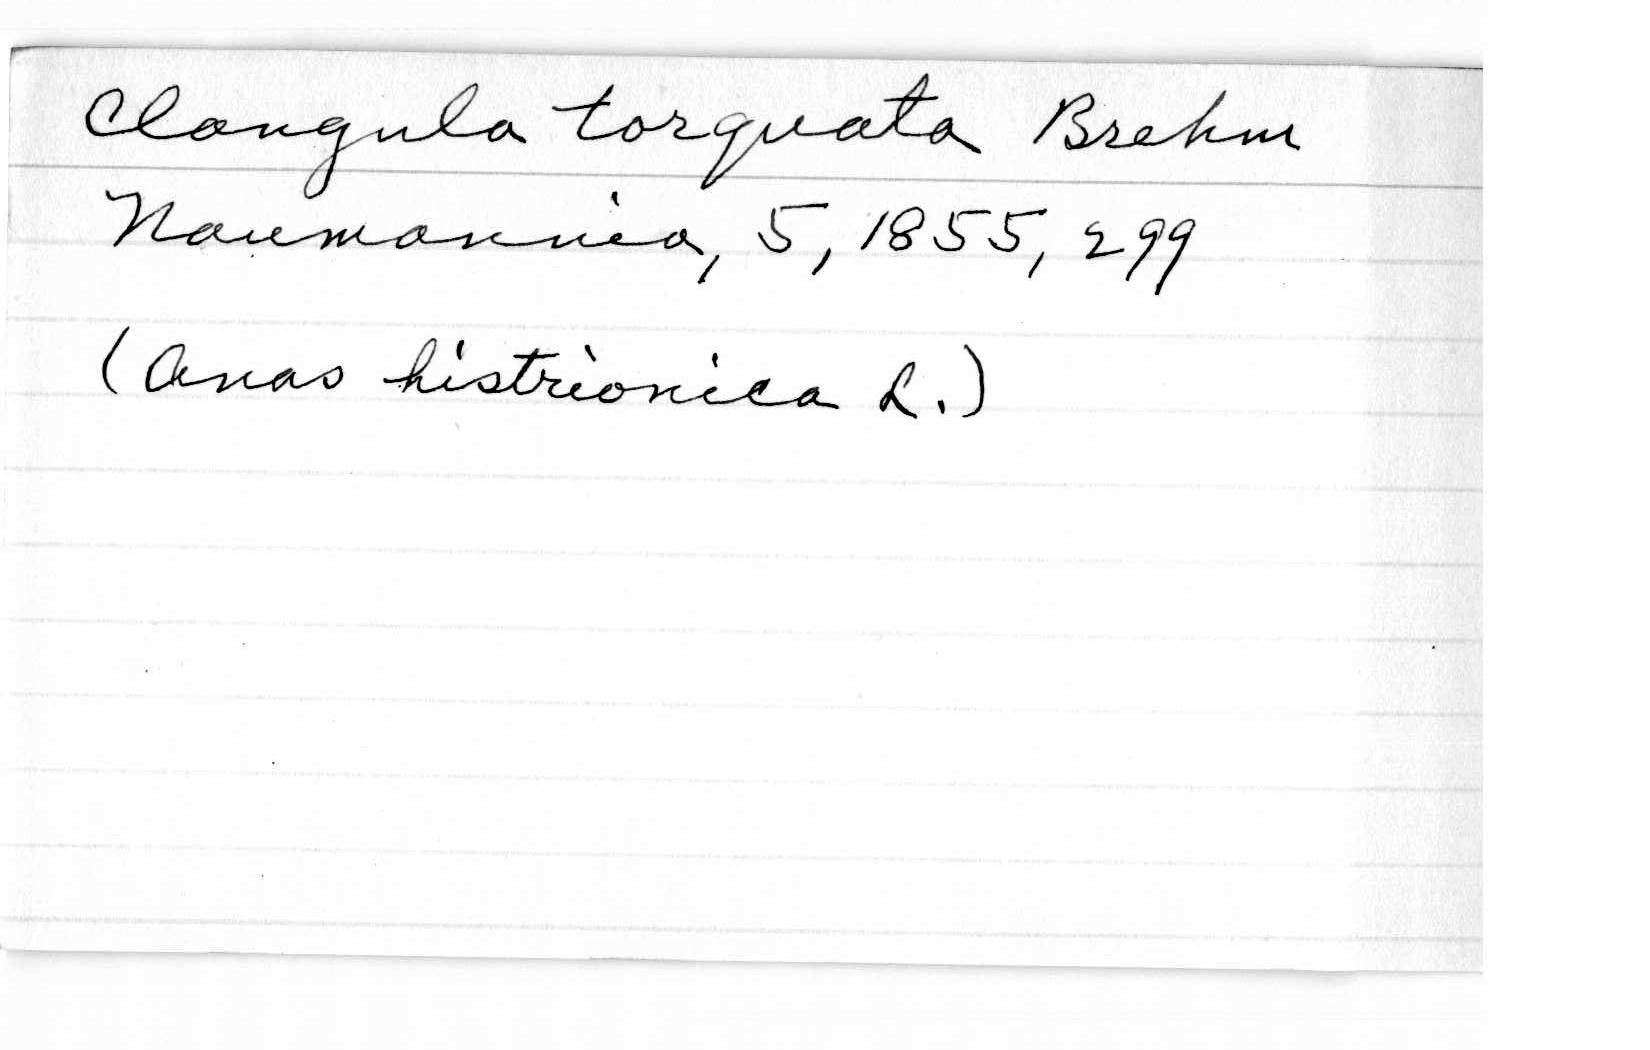 Clangula torquata Brehm
Naumannia, 5, 1855, 299
(Anas histrionica L.)